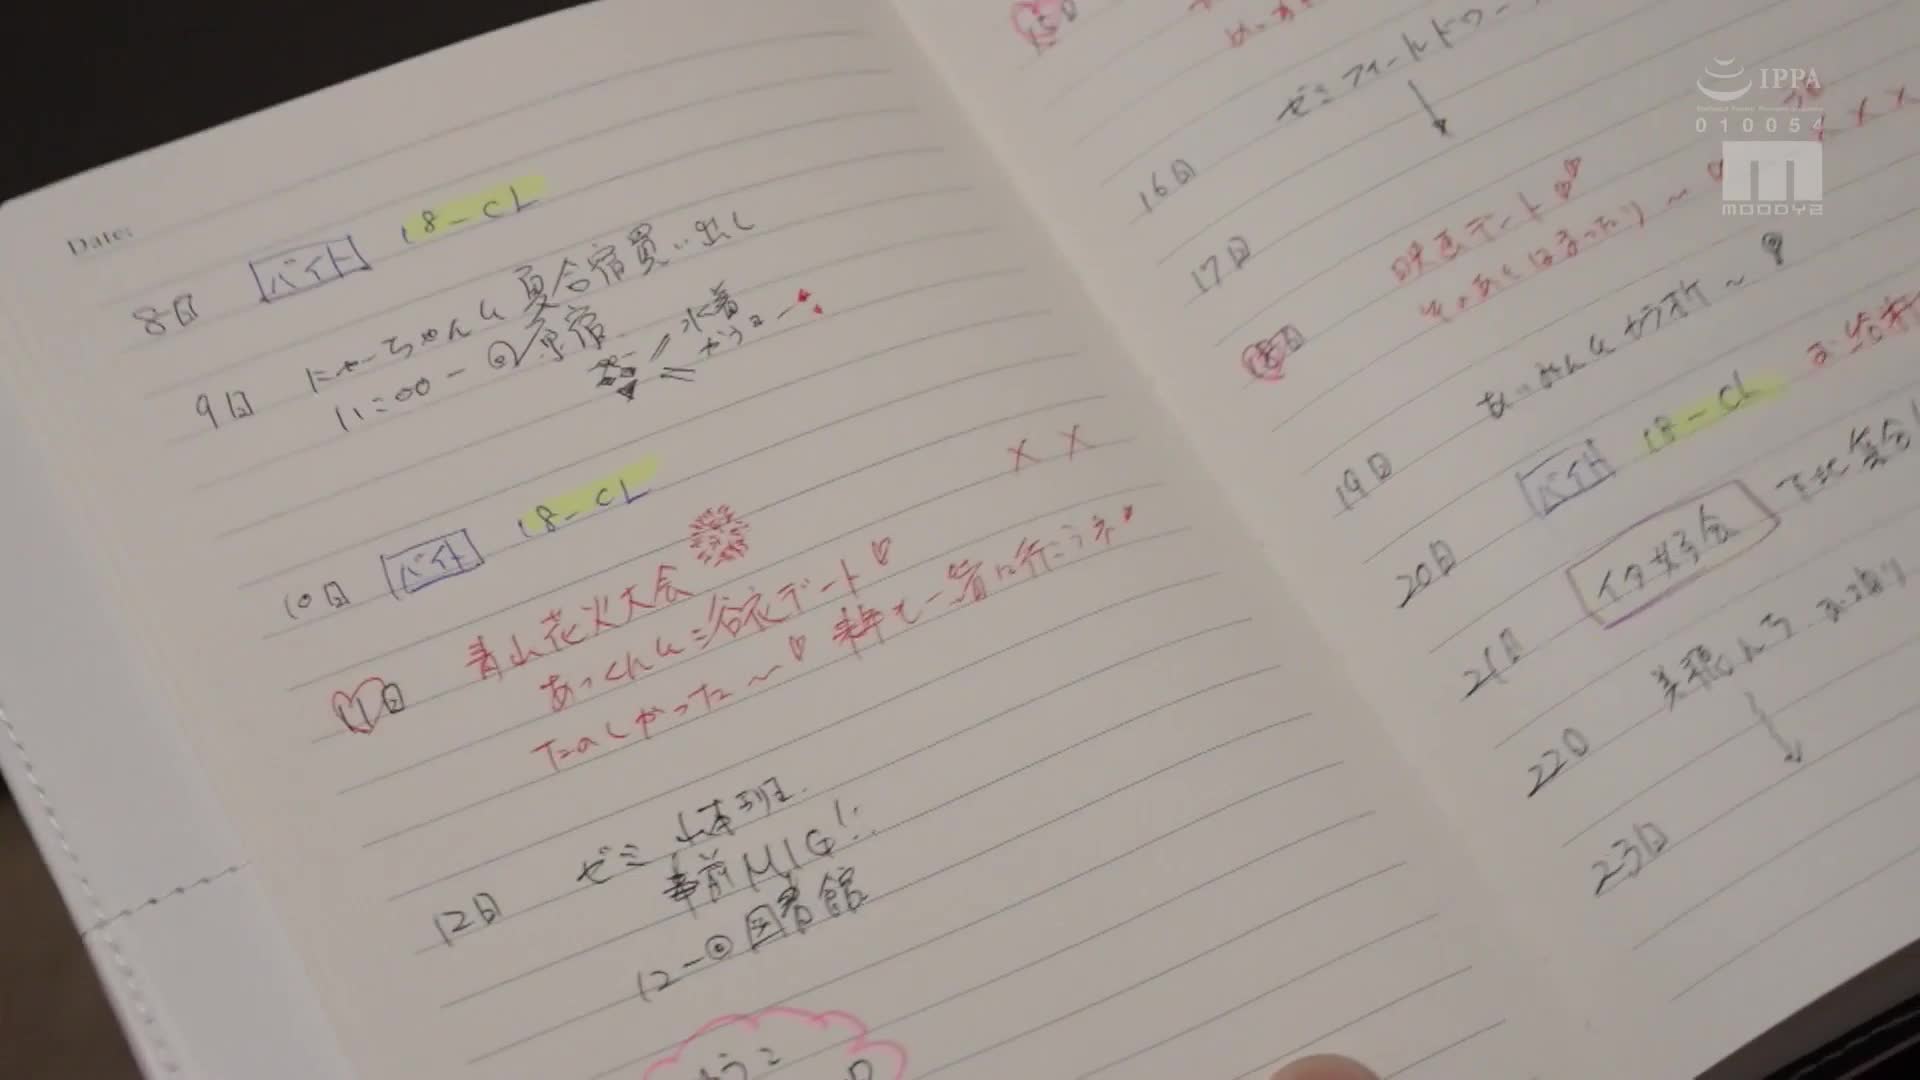 Date:
8日 バイト 18-CL
9日 にゃーちゃんと夏合宿買い出し
11:00-@原宿
水着
10日 バイト 18-CL
××
11日 青山花火大会
あっくんと浴衣デート♡
たのしかった~♡ 来年も一緒に行こうネ
12日 ゼミ 山本班
事前MTG!!
12-@図書館
15日
ゼミフィールドワー
16日
17日
×××
18日 映画デート♡♡
そのあとはまったり~♡
19日 カラオケ~
20日 バイト 18-CL お給料
21日 イタ女子会 下北集合
22日
23日
IPPA
010054
MOODYZ